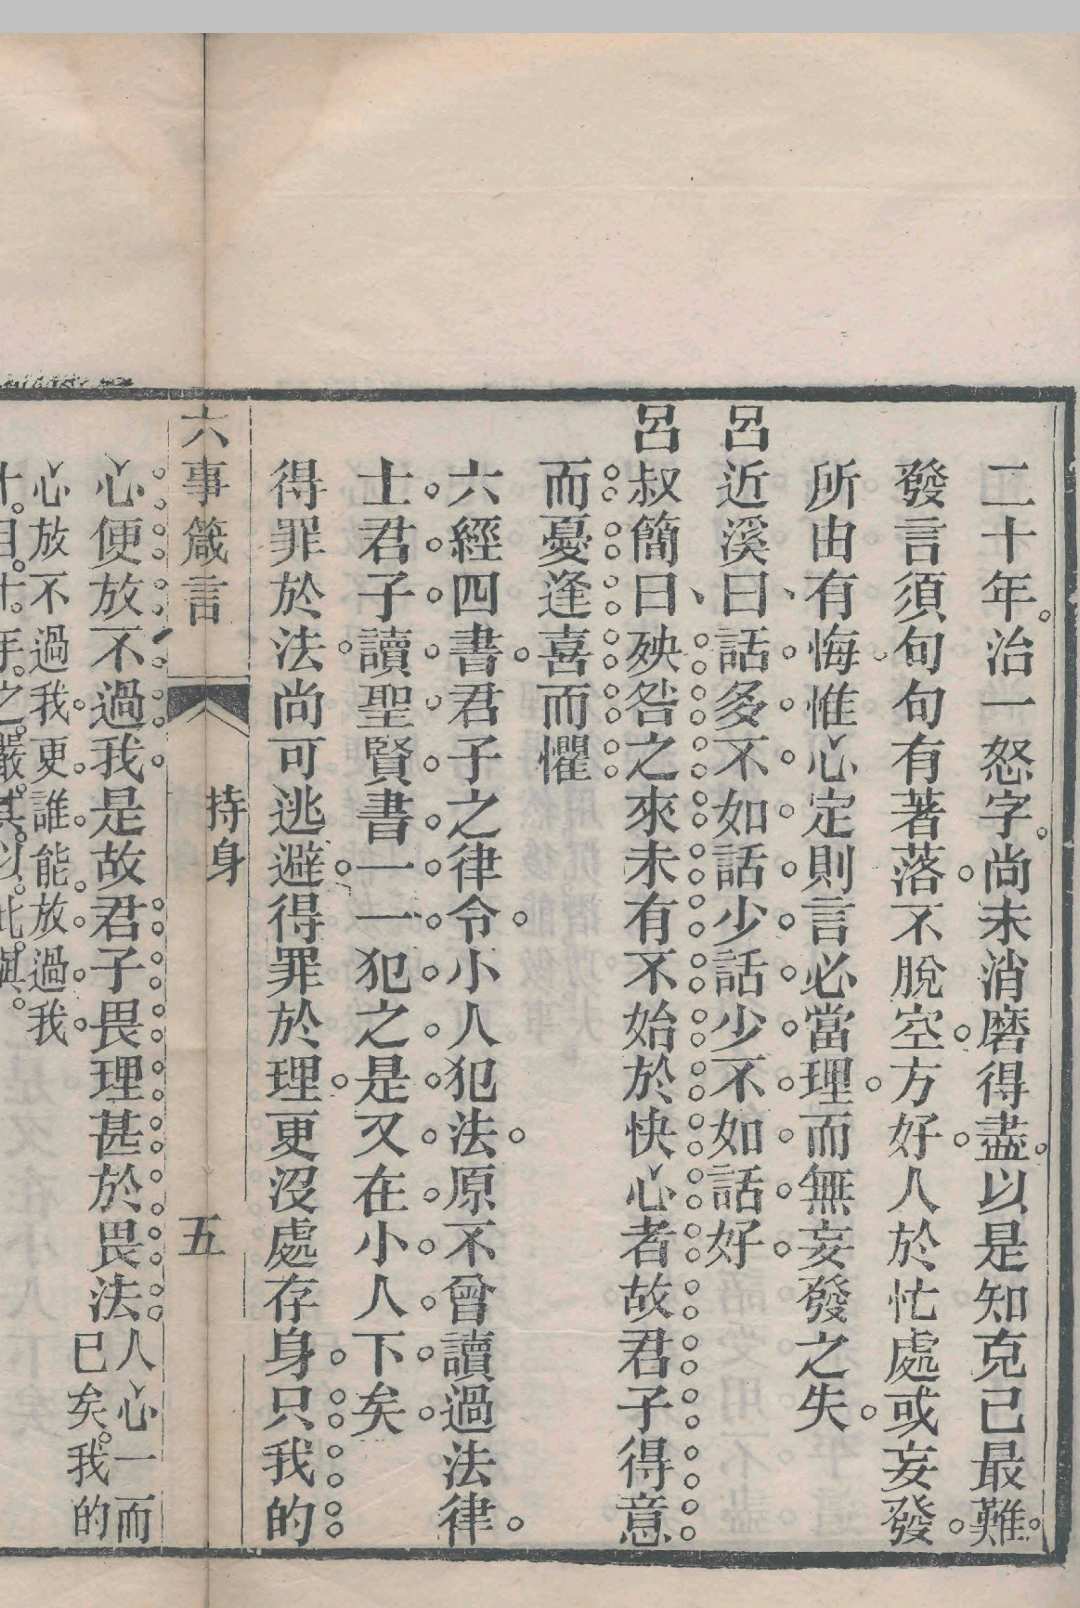 二十年治一怒字尚未消磨得盡以是知克己最難
發言須句句有著落不脫空方好人於忙處或妄發
所由有悔惟心定則言必當理而無妄發之失
呂近溪曰話多不如話少話少不如話好
呂叔簡曰殃咎之來未有不始於快心者故君子得意
而憂逢喜而懼
六經四書君子之律令小人犯法原不曾讀過法律
士君子讀聖賢書一一犯之是又在小人下矣
得罪於法尚可逃避得罪於理更沒處存身只我的
六事箴言
持身
五
心便放不過我是故君子畏理甚於畏法
人心一而
已矣我的
心放不過我更誰能放過我
十目十手之嚴其以此